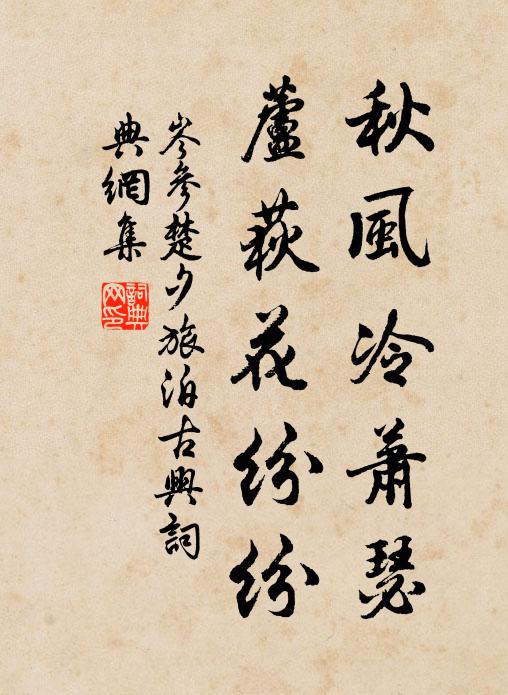 秋風冷蕭瑟
蘆荻花紛紛
岑參楚夕旅泊古興詞
典網集
詞典網印